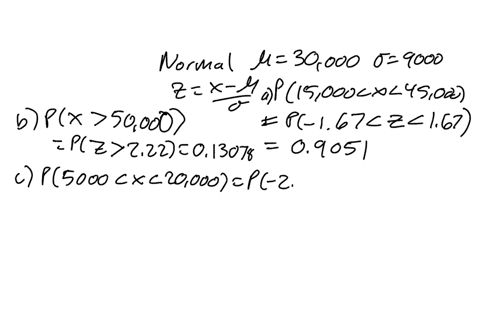 Normal μ=30,000 σ=9000
z=x-μ/σ a) P(15,000<x<45,000)
= P(-1.67<z<1.67)
= 0.9051
b) P(x>50,000)
=P(z>2.22)=0.13078
c) P(5000<x<20,000)=P(-2.